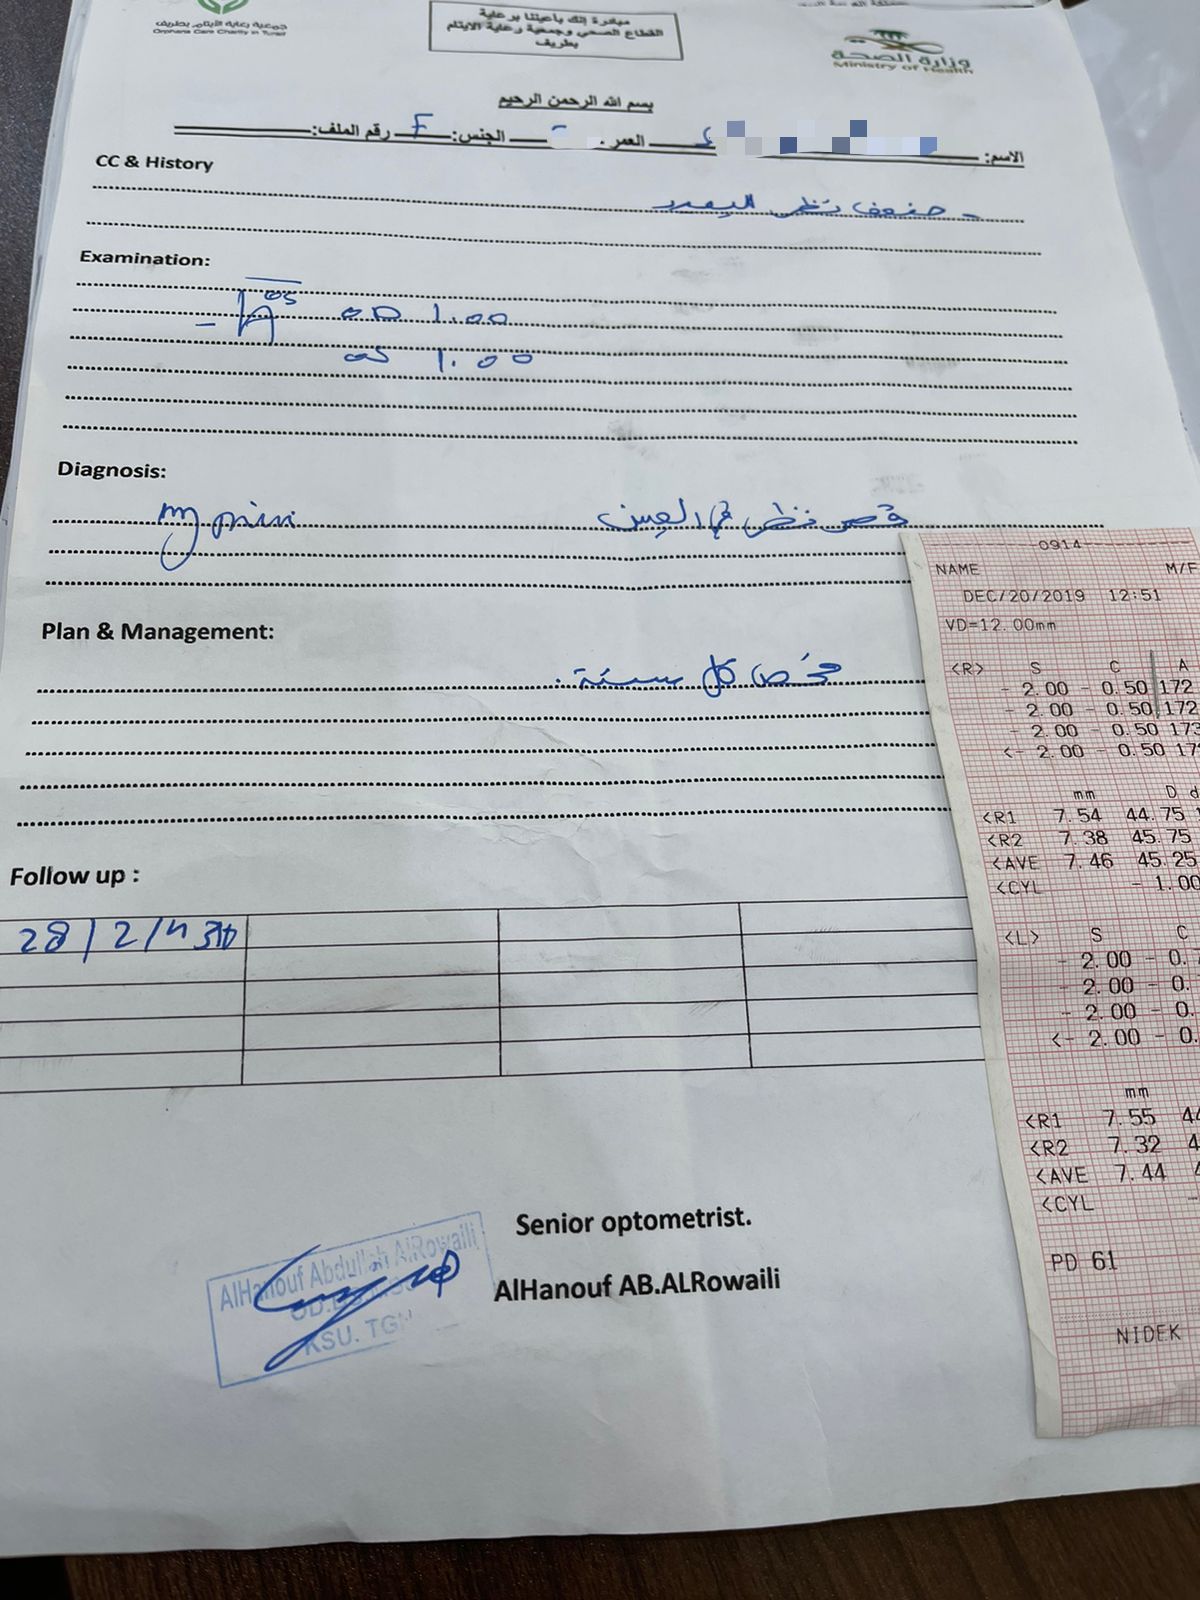 جمعية رعاية الأيتام بطريف
Orphans Care Charity in Turaif
مبادرة إنك بأعيننا برعاية
القطاع الصحي وجمعية رعاية الايتام
بطريف
وزارة الصحة
Ministry of Health
بسم الله الرحمن الرحيم
الاسم: العمر الجنس: F رقم الملف:
CC & History
- ضعف نظر
Examination:
OD 1.00
OS 1.00
Diagnosis:
قصر نظر في العين
Plan & Management:
فحص كل سنة.
Follow up :
28/2/
Senior optometrist.
AlHanouf AB.ALRowaili
AlHanouf Abdullah AlRowaili
KSU.
0914
NAME M/F
DEC/20/2019 12:51
VD=12.00mm
<R> S C A
- 2.00 - 0.50 172
- 2.00 - 0.50 172
- 2.00 - 0.50 173
<- 2.00 - 0.50 17
mm D d
<R1 7.54 44.75
<R2 7.38 45.75
<AVE 7.46 45.25
<CYL - 1.00
<L> S C
- 2.00 - 0.
- 2.00 - 0.
- 2.00 - 0.
<- 2.00 - 0.
mm
<R1 7.55 44
<R2 7.32 4
<AVE 7.44 4
<CYL -
PD 61
NIDEK